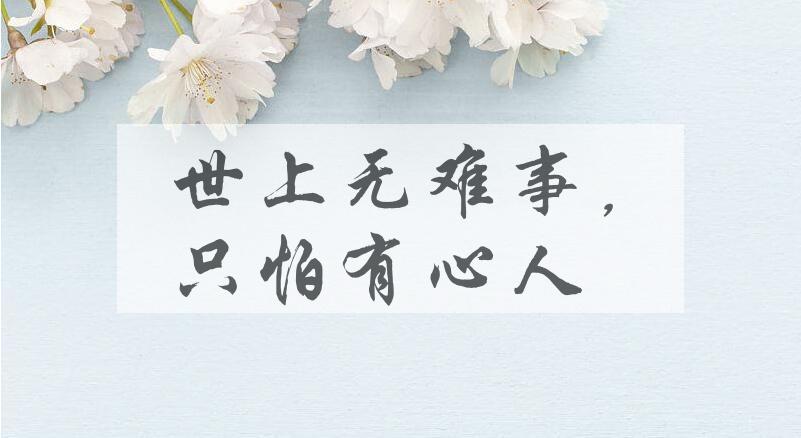 世上无难事，
只怕有心人